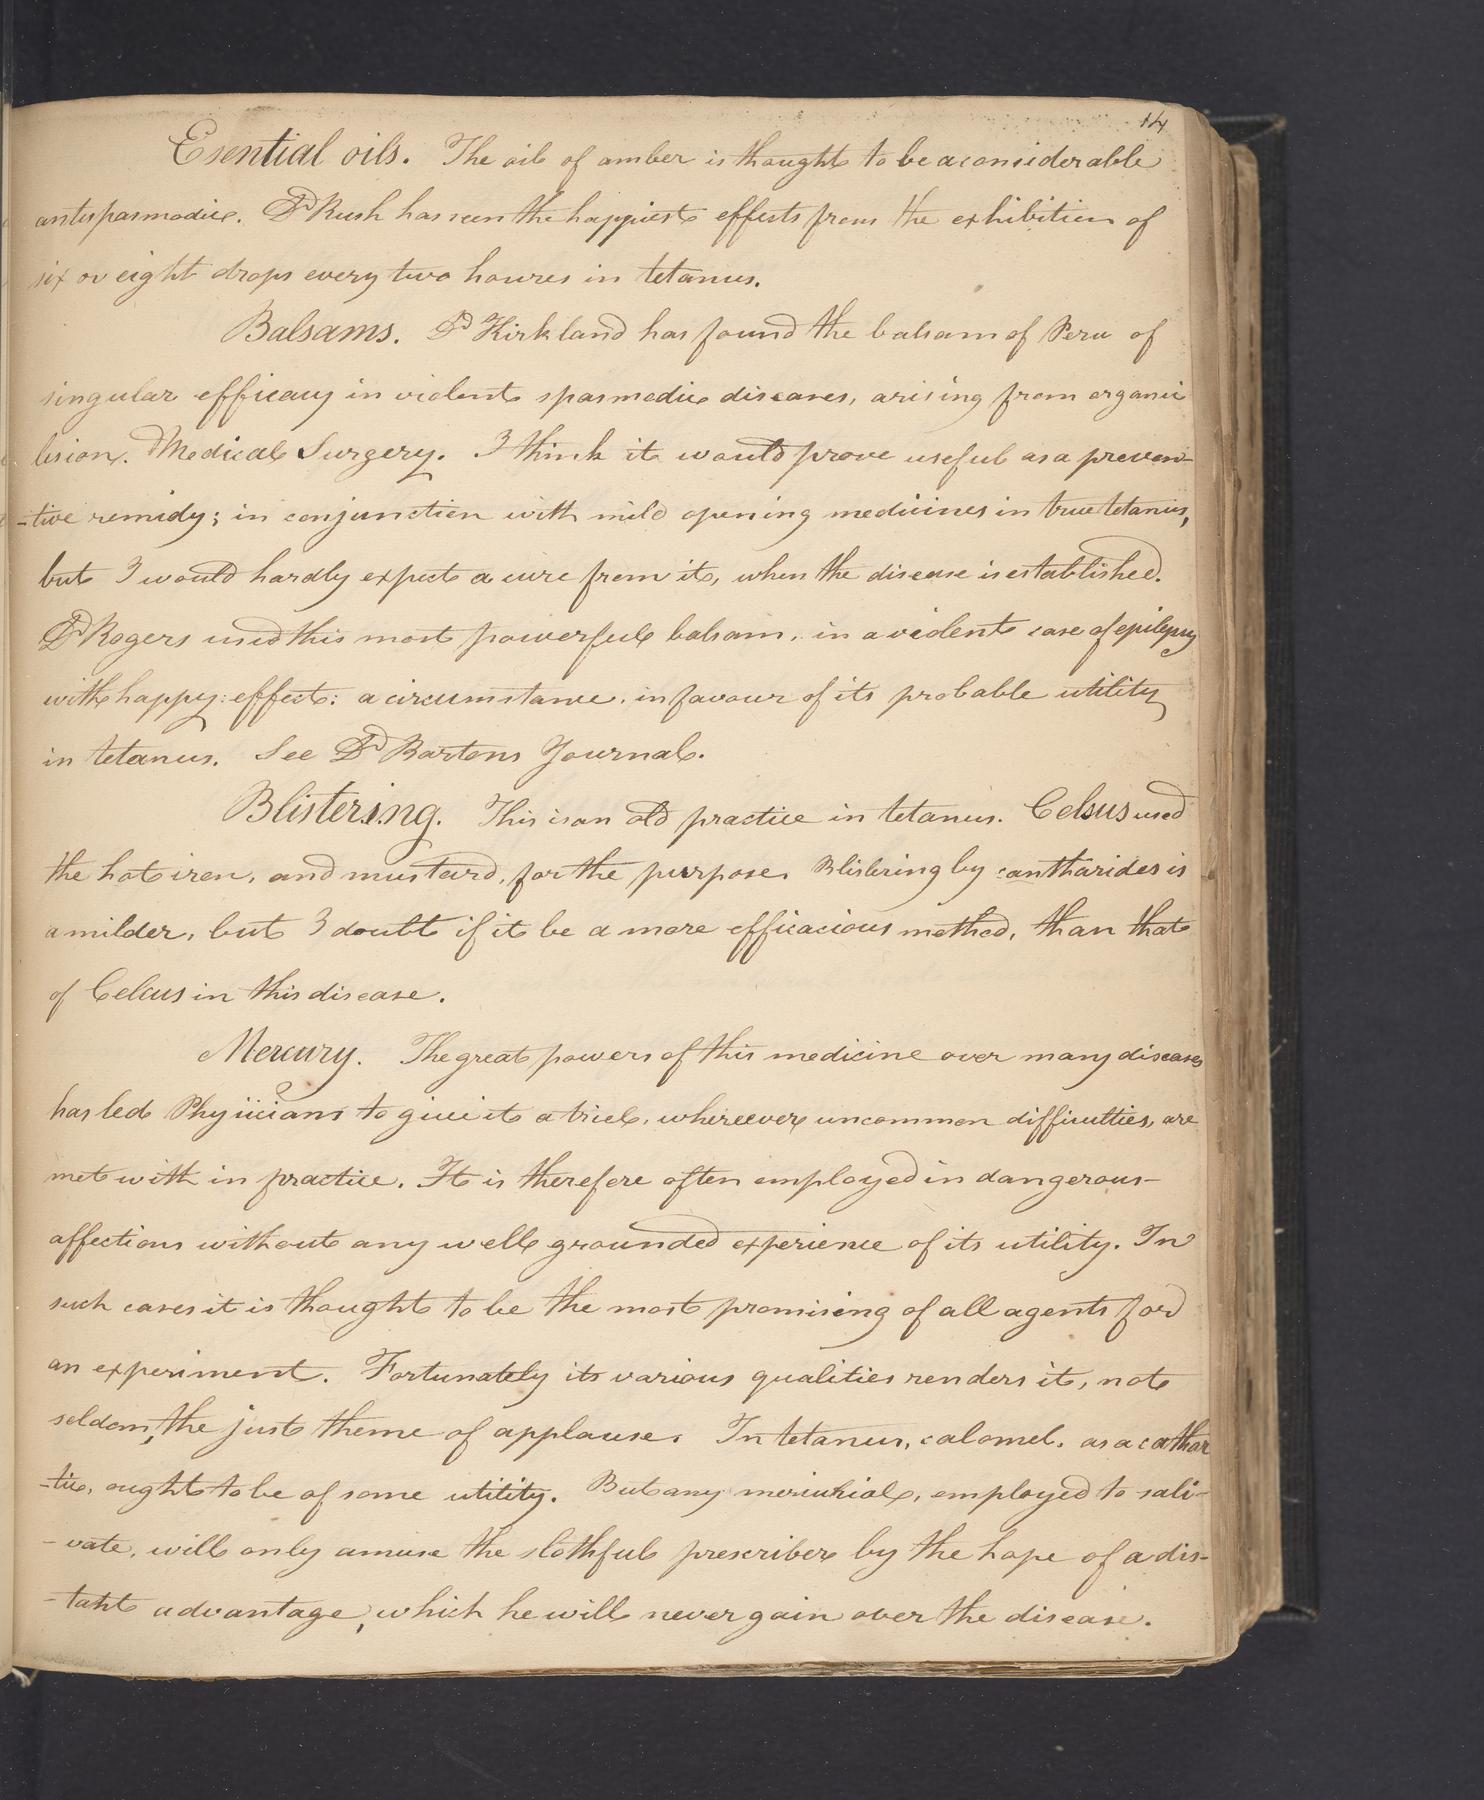 14
Esential oils. The oil of amber is thought to be a considerable
antispasmodic. Dr Rush has seen the happiest effects from the exhibition of
six or eight drops every two houres in tetanus.
Balsams. Dr Kirkland has found the balsam of Peru of
singular efficacy in violent spasmodic diseases, arising from organic
lesion. Medical Surgery. I think it would prove useful as a preven-
-tive remidy; in conjunction with mild opening medicines in true tetanus,
but I would hardly expect a cure from it, when the disease is established.
Dr Rogers used this most powerful balsam, in a violent case of epilepsy
with happy effect: a circumstance, in favour of its probable utility
in tetanus. See Dr Bartons Journal.
Blistering. This is an old practice in tetanus. Celsus used
the hot iren, and mustard, for the purpose. Blistering by cantharides is
a milder, but I doubt if it be a more efficacious method, than that
of Celsus in this disease.
Mercury. The great powers of this medicine over many diseases
has led Physicians to give it a triel, whereever uncommon difficulties, are
met with in practice. It is therefore often employed in dangerous-
affections without any well grounded experience of its utility. In
such cases it is thought to be the most promising of all agents for
an experiment. Fortunately its various qualities renders it, not
seldom, the just theme of applause. In tetanus, calomel, as a cathar
-tic, ought to be of some utility. But any meriurial, employed to sali-
-vate, will only amuse the slothful prescriber by the hope of a dis-
-tant advantage, which he will never gain over the disease.